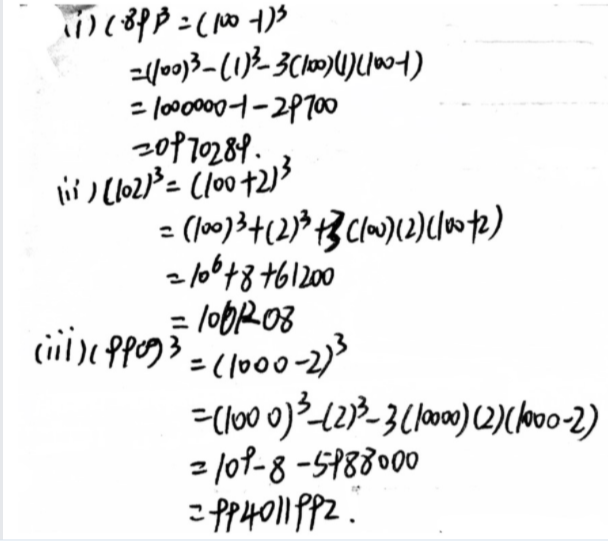 (i) (99)³ = (100 -1)³
= (100)³ - (1)³ - 3(100)(1)(100-1)
= 1000000 - 1 - 29700
= 0970289.
(ii) (102)³ = (100+2)³
= (100)³ + (2)³ + 3(100)(2)(100+2)
= 10⁶ + 8 + 61200
= 1061208
(iii) (998)³ = (1000-2)³
= (1000)³ - (2)³ - 3(10000)(2)(1000-2)
= 10⁹ - 8 - 5988000
= 994011992.